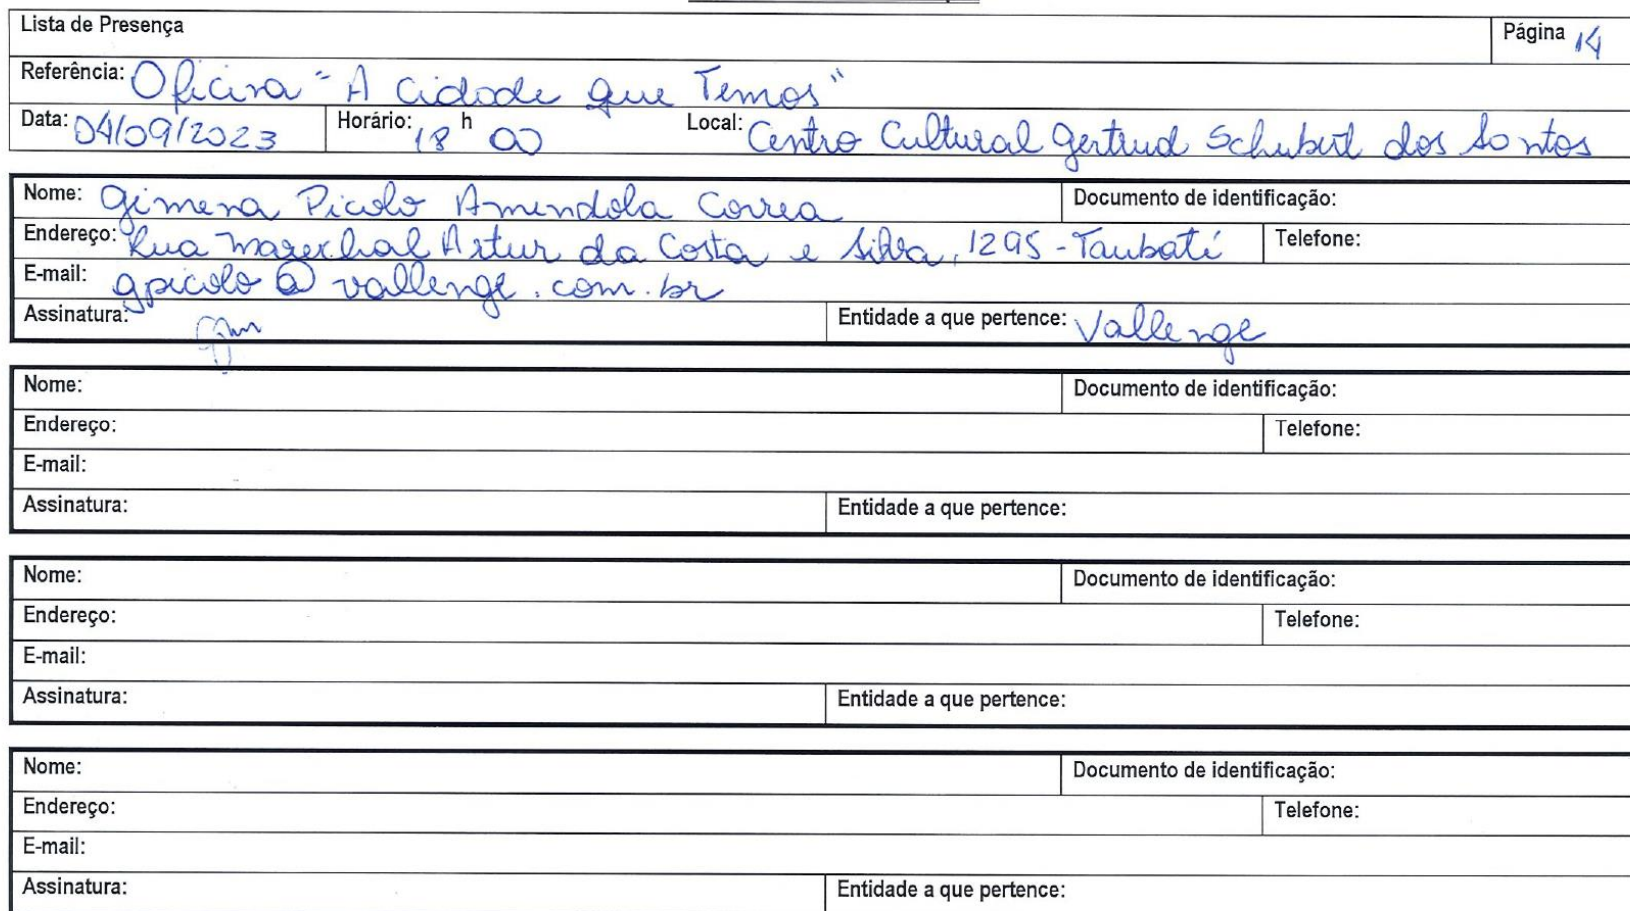 Lista de Presença Página 14
Referência: Oficina "A Cidade que Temos"
Data: 04/09/2023 Horário: 18 h 00 Local: Centro Cultural Gertrud Schubert dos Santos
Nome: Gimena Picolo Amendola Correa Documento de identificação:
Endereço: Rua Marechal Artur da Costa e Silva, 1295 - Taubaté Telefone:
E-mail: gpicolo@vallenge.com.br
Assinatura: Entidade a que pertence: Vallenge
Nome: Documento de identificação:
Endereço: Telefone:
E-mail:
Assinatura: Entidade a que pertence:
Nome: Documento de identificação:
Endereço: Telefone:
E-mail:
Assinatura: Entidade a que pertence:
Nome: Documento de identificação:
Endereço: Telefone:
E-mail:
Assinatura: Entidade a que pertence: